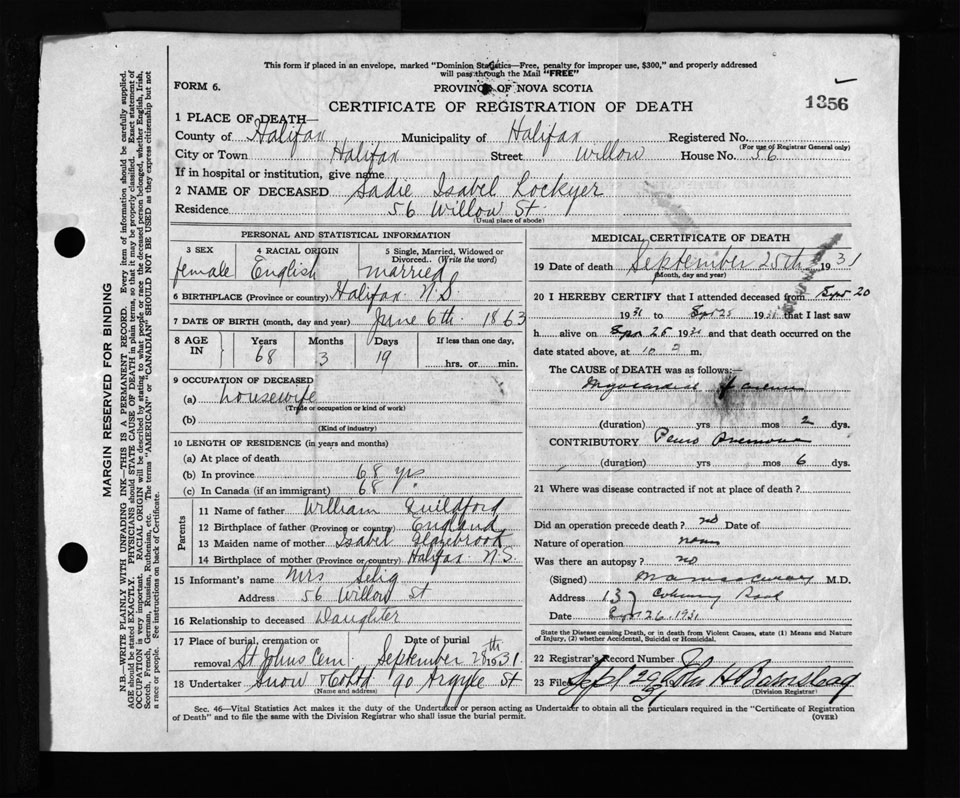 This form if placed in an envelope, marked "Dominion Statistics—Free, penalty for improper use, $300," and properly addressed
will pass through the Mail "FREE"
FORM 6.
PROVINCE OF NOVA SCOTIA
CERTIFICATE OF REGISTRATION OF DEATH
1356
1 PLACE OF DEATH—
County of Halifax Municipality of Halifax Registered No.
(For use of Registrar General only)
City or Town Halifax Street Willow House No. 56
If in hospital or institution, give name
2 NAME OF DECEASED Sadie Isabel Lockyer
Residence 56 Willow St
(Usual place of abode)
PERSONAL AND STATISTICAL INFORMATION
3 SEX 4 RACIAL ORIGIN 5 Single, Married, Widowed or
Divorced.. (Write the word)
female English married
6 BIRTHPLACE (Province or country) Halifax N.S
7 DATE OF BIRTH (month, day and year) June 6th 1863
8 AGE IN Years Months Days If less than one day,
68 3 19 hrs. or min.
9 OCCUPATION OF DECEASED
(a) housewife
(Trade or occupation or kind of work)
(b)
(Kind of industry)
10 LENGTH OF RESIDENCE (in years and months)
(a) At place of death
(b) In province 68 yrs
(c) In Canada (if an immigrant) 68
Parents
11 Name of father William Guildford
12 Birthplace of father (Province or country) England
13 Maiden name of mother Isabel Glazebrook
14 Birthplace of mother (Province or country) Halifax N.S.
15 Informant's name Mrs Selig
Address 56 Willow St
16 Relationship to deceased Daughter
17 Place of burial, cremation or Date of burial
removal St Johns Cem September 28th 31
18 Undertaker Snow & Co Ltd 90 Argyle St
(Name and address)
MEDICAL CERTIFICATE OF DEATH
19 Date of death September 25th 1931
(Month, day and year)
20 I HEREBY CERTIFY that I attended deceased from Sept 20
1931 to Sept 25 1931 that I last saw
h alive on Sept 25 1931 and that death occurred on
date stated above, at 10 a m.
The CAUSE of DEATH was as follows:—
Myocardial
(duration) yrs mos 2 dys.
CONTRIBUTORY Pneumonia
(duration) yrs mos 6 dys.
21 Where was disease contracted if not at place of death?
Did an operation precede death? no Date of
Nature of operation none
Was there an autopsy? no
(Signed) M.D.
Address 137 Road
Date Sept 26 1931
State the Disease causing Death, or in death from Violent Causes, state (1) Means and Nature
of Injury, (2) whether Accidental, Suicidal or Homicidal.
22 Registrar's Record Number
23 Filed Sept 29 31 John H Barnstead
(Division Registrar)
Sec. 46—Vital Statistics Act makes it the duty of the Undertaker or person acting as Undertaker to obtain all the particulars required in the "Certificate of Registration
of Death" and to file the same with the Division Registrar who shall issue the burial permit.
(OVER)
MARGIN RESERVED FOR BINDING
N.B.—WRITE PLAINLY WITH UNFADING INK—THIS IS A PERMANENT RECORD. Every item of information should be carefully supplied.
AGE should be stated EXACTLY. PHYSICIANS should STATE CAUSE OF DEATH in plain terms, so that it may be properly classified. Exact statement of
OCCUPATION is very important. RACIAL ORIGIN will be described by stating to what people or race the deceased person belonged, whether English, Irish,
Scotch, French, German, Russian, Ruthenian, etc. The terms "AMERICAN" or "CANADIAN" SHOULD NOT BE USED as they express citizenship but not
a race or people. See instructions on back of Certificate.